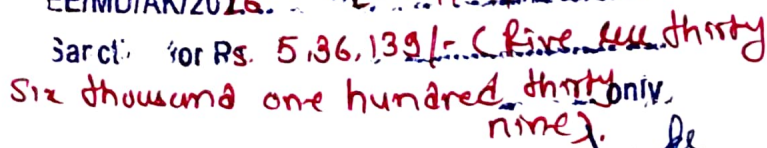 EE/MD/AK/2026.
Sarcti for Rs. 5,36,139/- (Five thirty
Six thousand one hundred thirty only.
nine).